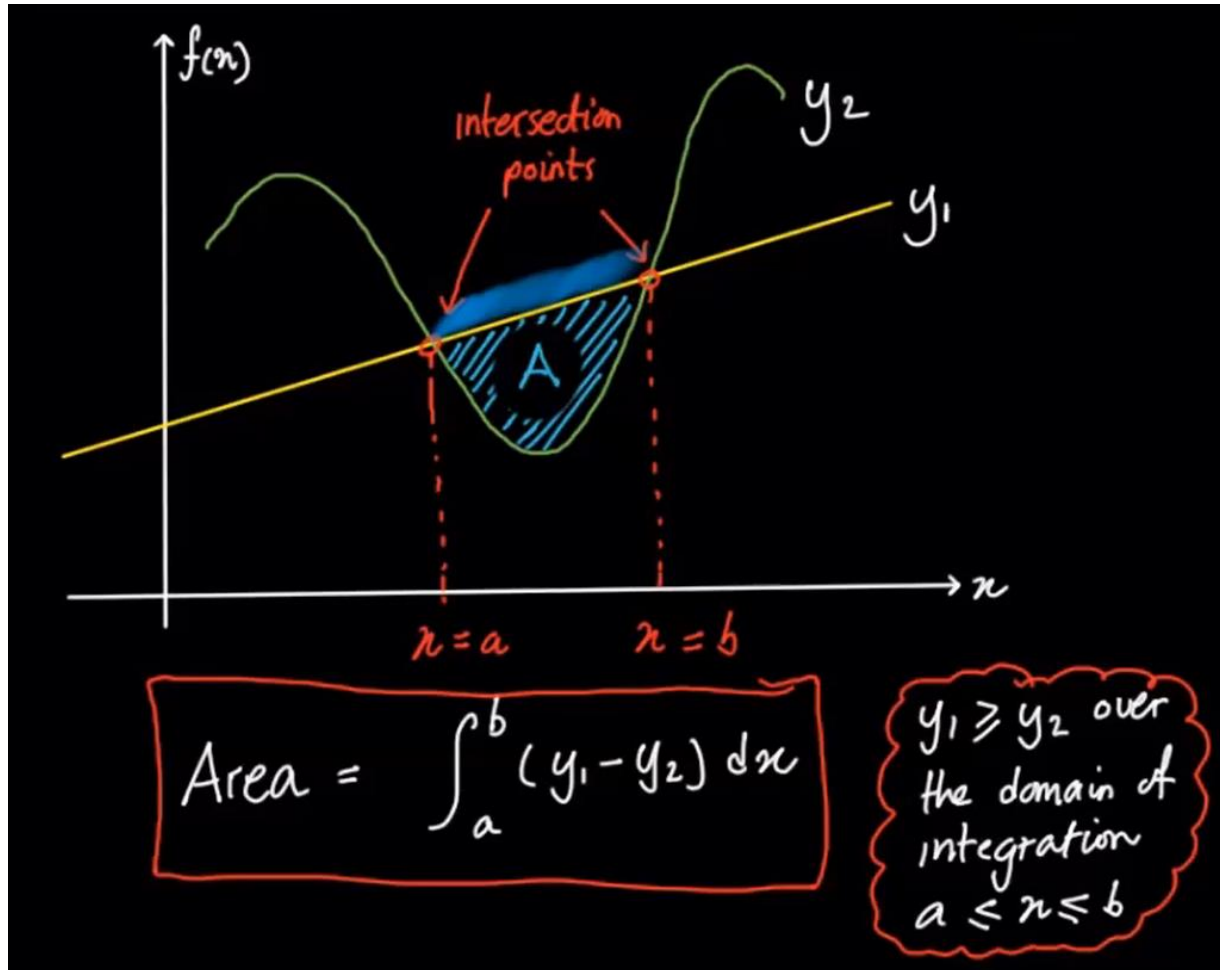 f(x)
intersection
points
y₂
y₁
A
x
x = a
x = b
Area = ∫ₐᵇ (y₁ - y₂) dx
y₁ ⩾ y₂ over
the domain of
integration
a ⩽ x ⩽ b